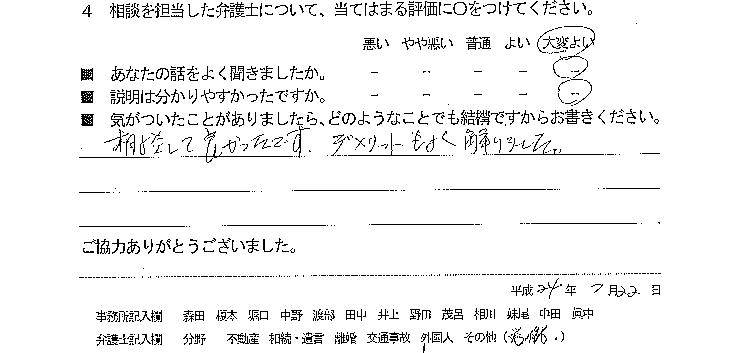 4 相談を担当した弁護士について、当てはまる評価に○をつけてください。
悪い やや悪い 普通 よい 大変よい
あなたの話をよく聞きましたか。 － － － － －
説明は分かりやすかったですか。 － － － － －
気がついたことがありましたら、どのようなことでも結構ですからお書きください。
相談して良かったです。デメリットもよく解りました。
ご協力ありがとうございました。
平成24年 7月22日
事務所記入欄 森田 榎本 堀口 中野 渡部 田中 井上 野田 茂呂 相川 妹尾 中田 眞中
弁護士記入欄 分野 不動産 相続・遺言 離婚 交通事故 外国人 その他（ ）